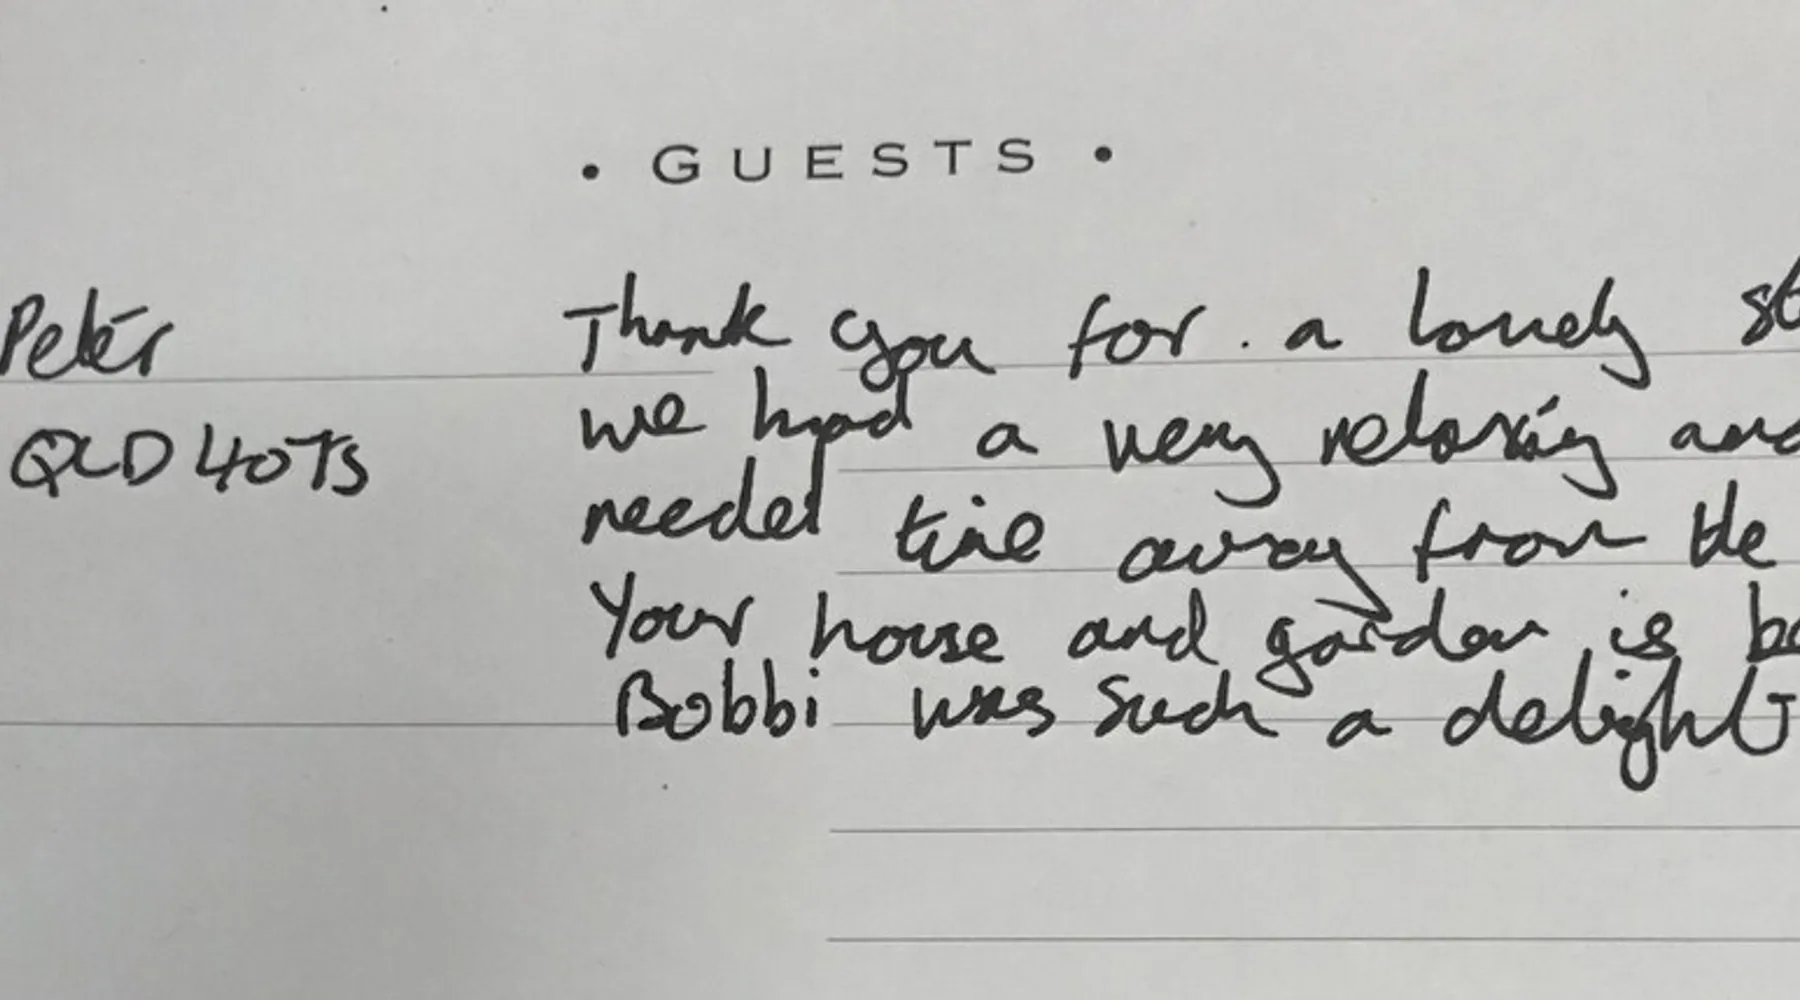 • GUESTS •
Peter
Thank you for . a lovely st
QLD 4075
we had a very relaxing and
needed time away from the
Your house and garden is be
Bobbi was such a delight